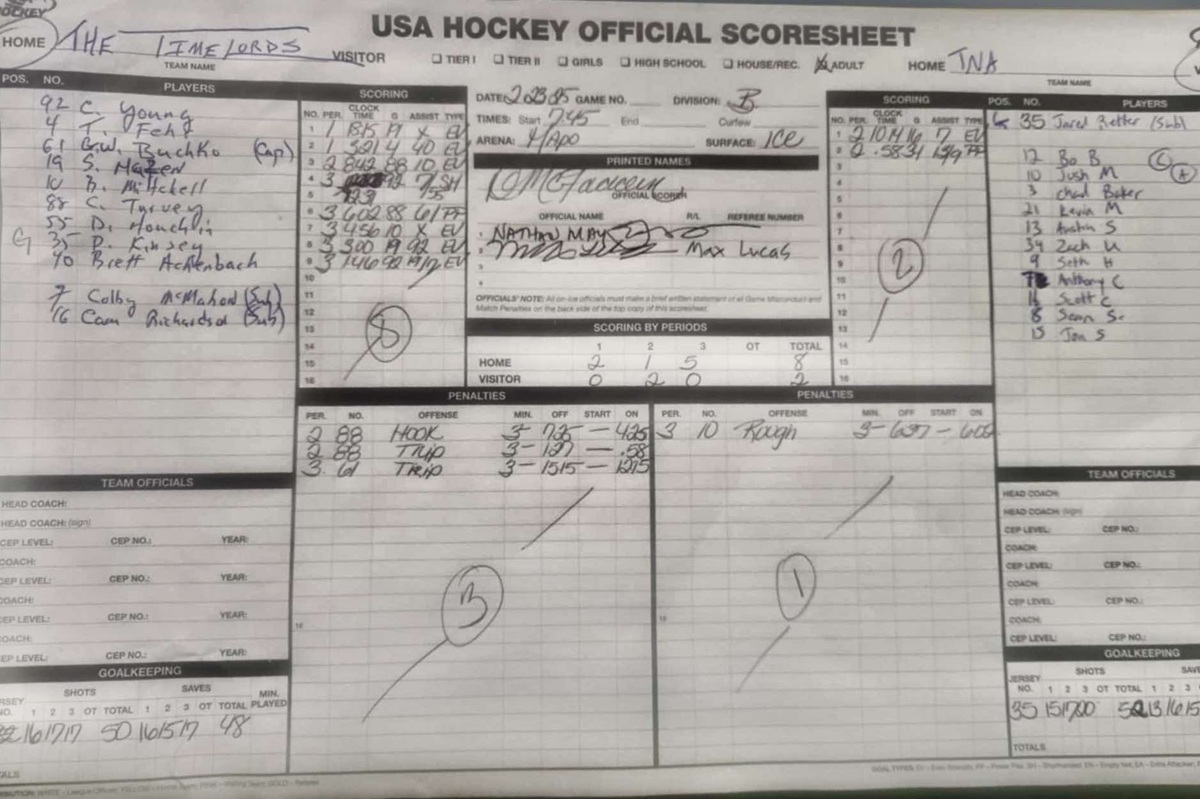 HOCKEY
USA HOCKEY OFFICIAL SCORESHEET
HOME THE TIMELORDS VISITOR
TEAM NAME
TIER I TIER II GIRLS HIGH SCHOOL HOUSE/REC. ADULT
HOME TNA
TEAM NAME
POS. NO. PLAYERS
92 C. Young
4 T. Fehl
61 G.W. Buchko (Cap)
19 S. Hazen
10 B. Mitchell
88 C. Turvey
55 D. Houchlin
G 35 D. Kinsey
40 Brett Achenbach
7 Colby McMahon (Sub)
16 Cam Richardson (Sub)
SCORING
NO. PER. CLOCK TIME G ASSIST TYPE
1 1 1815 19 X EV
2 1 321 4 40 EV
3 2 842 88 10 EV
4 3 92 7 SH
5 723 55
6 3 602 88 61 PP
7 3 456 10 X EV
8 3 300 19 92 EV
9 3 146 92 19/12 EV
10
11
12
13
14
15
16
8
DATE: 2 23 25 GAME NO. DIVISION: B
TIMES: Start 745 End Curfew
ARENA: MAPO SURFACE: ICE
PRINTED NAMES
OFFICIAL SCORER
OFFICIAL NAME R/L REFEREE NUMBER
1 NATHAN MAY
2 Max Lucas
3
4
OFFICIALS' NOTE: All on-ice officials must make a brief written statement of all Game Misconduct and
Match Penalties on the back side of the top copy of this scoresheet.
SCORING BY PERIODS
1 2 3 OT TOTAL
HOME 2 1 5 8
VISITOR 0 2 0 2
SCORING
NO. PER. CLOCK TIME G ASSIST TYPE
1 2 1014 16 7 EV
2 2 .58 34 13/9 PP
3
4
5
6
7
8
9
10
11
12
13
14
15
16
2
POS. NO. PLAYERS
G 35 Jared Retter (Sub)
12 Bo B (C)
10 Josh M (A)
3 Chad Baker
21 Kevin M
13 Austin S
34 Zach U
9 Seth H
7 Anthony C
16 Scott C
8 Sean S
15 Jon S
PENALTIES
PER. NO. OFFENSE MIN. OFF START ON
2 88 HOOK 3 - 725 - 425
2 88 TRIP 3 - 127 - .58
3 61 TRIP 3 - 1515 - 1215
3
PENALTIES
PER. NO. OFFENSE MIN. OFF START ON
3 10 Rough 3 - 637 - 602
1
TEAM OFFICIALS
HEAD COACH:
HEAD COACH: (sign)
CEP LEVEL: CEP NO.: YEAR:
COACH:
CEP LEVEL: CEP NO.: YEAR:
COACH:
CEP LEVEL: CEP NO.: YEAR:
COACH:
CEP LEVEL: CEP NO.: YEAR:
GOALKEEPING
SHOTS SAVES MIN. PLAYED
NO. 1 2 3 OT TOTAL 1 2 3 OT TOTAL
16 17 17 50 16 15 17 48
TEAM OFFICIALS
HEAD COACH:
HEAD COACH: (sign)
CEP LEVEL: CEP NO.:
COACH:
CEP LEVEL: CEP NO.:
COACH:
CEP LEVEL: CEP NO.:
COACH:
CEP LEVEL: CEP NO.:
GOALKEEPING
JERSEY NO. SHOTS
1 2 3 OT TOTAL 1 2 3
35 15 17 20 52 13 16 15
TOTALS